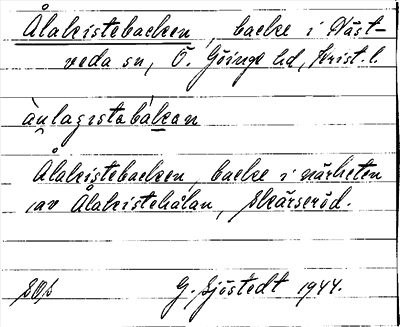 Ålakistebacken, backe i Näst-
veda sn, Ö. Göinge hd, Krist. l.
ålagistabakan
Ålakistebacken, backe i närheten
av Ålakistehålan, Skärseröd.
G. Sjöstedt 1944.